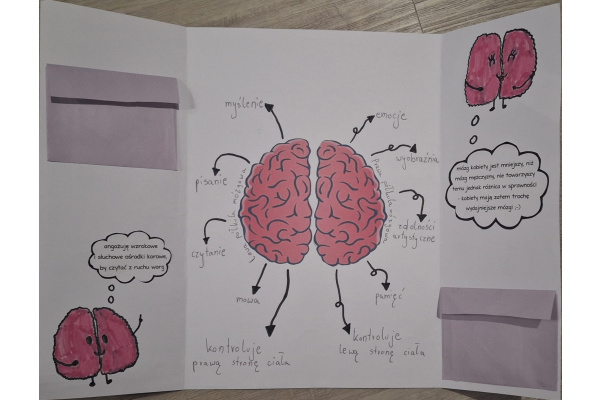 myślenie
pisanie
czytanie
mowa
kontroluje
prawą stronę ciała
lewa półkula mózgowa
emocje
wyobraźnia
zdolności
artystyczne
pamięć
kontroluje
lewą stronę ciała
prawa półkula mózgowa
angażują wzrokowe
i słuchowe ośrodki korowe,
by czytać z ruchu warg
mózg kobiety jest mniejszy, niż
mózg mężczyzny, nie towarzyszy
temu jednak różnica w sprawności
- kobiety mają zatem trochę
wydajniejsze mózgi ;-)